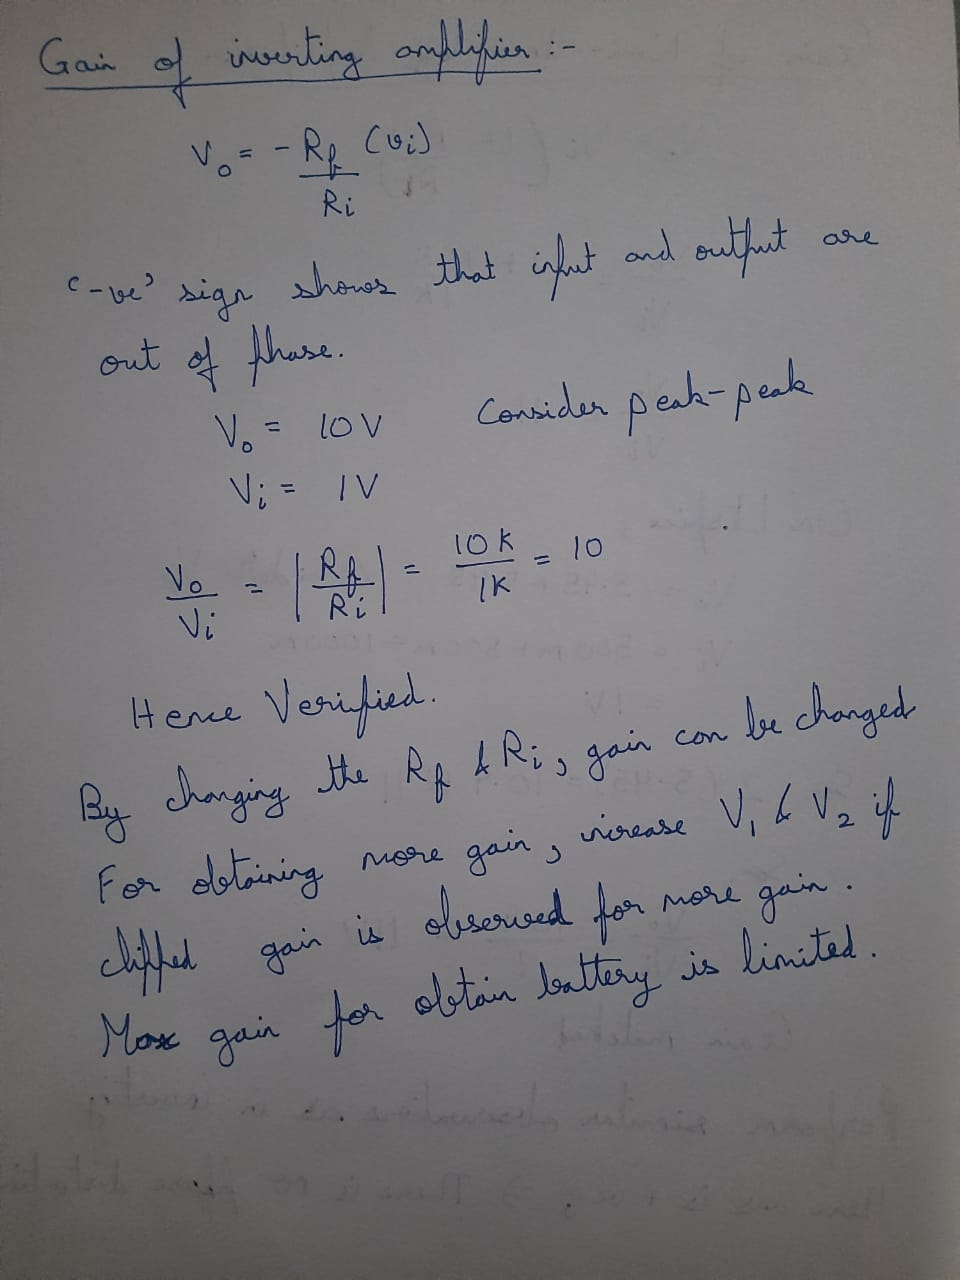 Gain of inverting amplifier :-
V₀ = - Rf (vi)
Ri
'-ve' sign shows that input and output are
out of phase.
V₀ = 10V Consider peak-peak
Vi = 1V
V₀/Vi = |Rf/Ri| = 10K/1K = 10
Hence Verified.
By changing the Rf & Ri, gain can be changed
For obtaining more gain, increase V₁ & V₂ if
clipped gain is observed for more gain.
Max gain for obtain battery is limited.